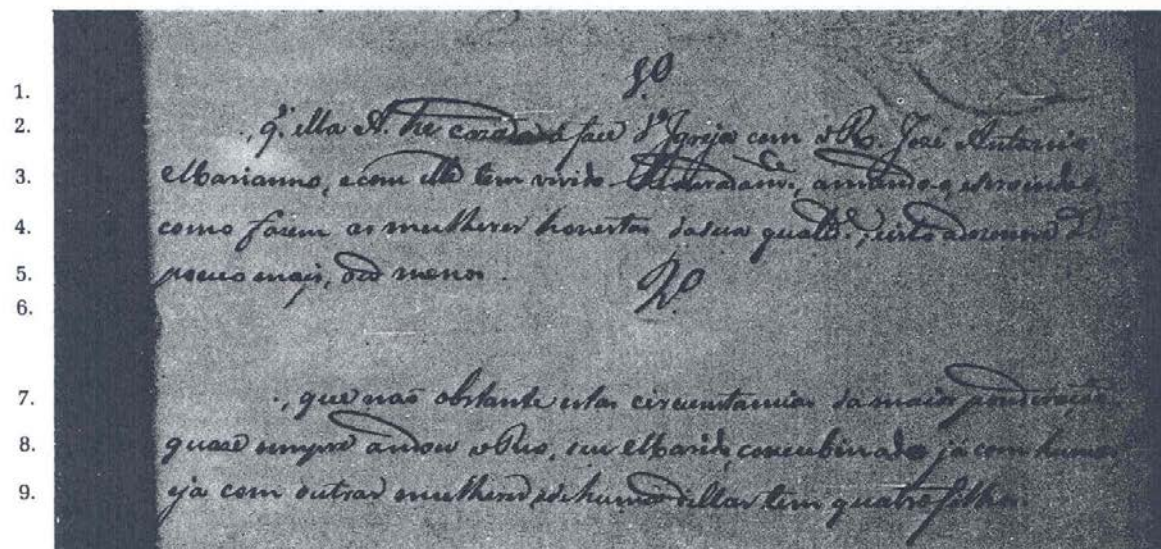 1. 1.º
2. q̃. ella A. he cazada á face d'Igreja com o R. José Antonio
3. Marianno, e com elle tem vivido amando-o, e servindo-o,
4. como fazem as mulheres honestas da sua qualid.e, isto a
5. pouco mais, ou menos.
6. 2.º
7. , que não obstante estas circumstancias da maior ponderação,
8. quaze sempre andou o Reo, seu Marido, concubinado já com humas
9. e já com outras mulheres, e de huma dellas tem quatro filhos.